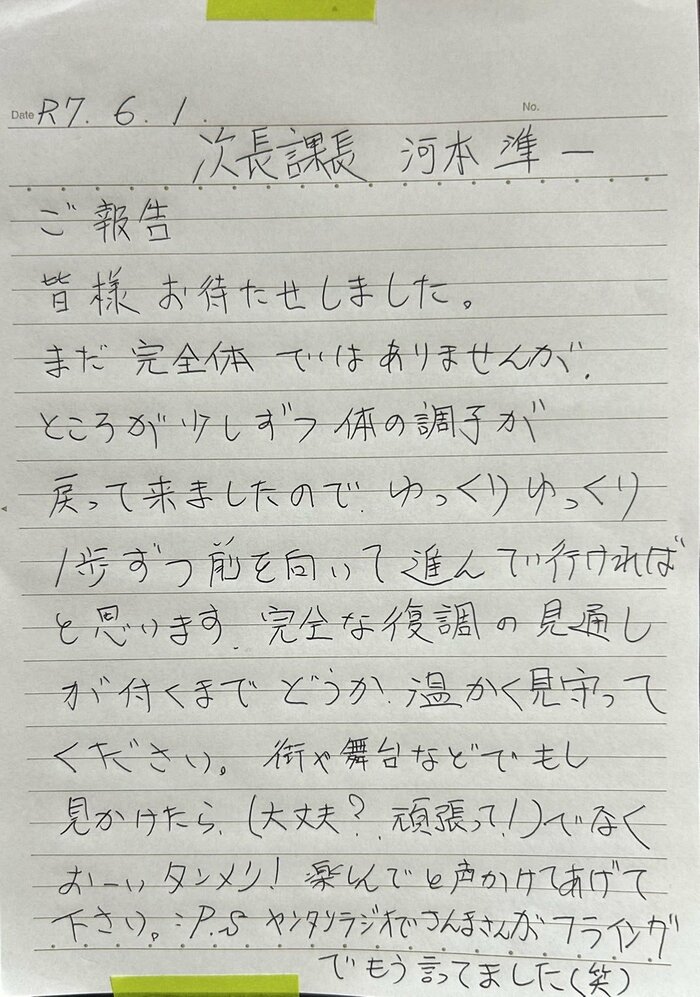 Date R7. 6. 1. No.
次長課長 河本準一
ご報告
皆様 お待たせしました。
まだ 完全体 ではありませんが、
ところが少しずつ 体の調子が
戻って来ましたので、ゆっくりゆっくり
1歩ずつ 前を向いて 進んで行ければ
と思います、完全な復調の見通し
が付くまで どうか、温かく見守って
ください。 街や舞台などでもし
見かけたら、(大丈夫?、頑張って!)でなく
おーいタンメン! 楽しんでと声かけてあげて
下さい。:P.S ヤンタンラジオでさんまさんがフライング
でもう言ってました(笑)